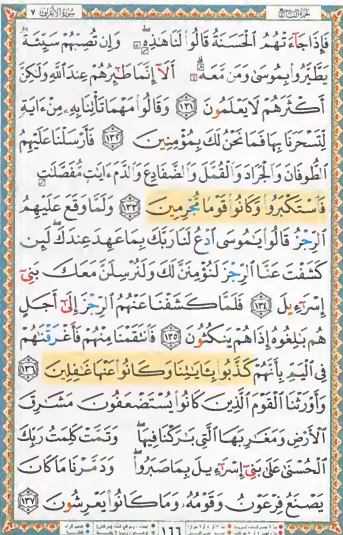 سُورَةُ الأَعْرَافِ ٧
فَإِذَا جَآءَتْهُمُ الْحَسَنَةُ قَالُوا لَنَا هَٰذِهِۦ وَإِن تُصِبْهُمْ سَيِّئَةٌ
يَطَّيَّرُوا بِمُوسَىٰ وَمَن مَّعَهُۥٓ أَلَآ إِنَّمَا طَٰٓئِرُهُمْ عِندَ اللَّهِ وَلَٰكِنَّ
أَكْثَرَهُمْ لَا يَعْلَمُونَ ١٣١ وَقَالُوا مَهْمَا تَأْتِنَا بِهِۦ مِنْ ءَايَةٍ
لِّتَسْحَرَنَا بِهَا فَمَا نَحْنُ لَكَ بِمُؤْمِنِينَ ١٣٢ فَأَرْسَلْنَا عَلَيْهِمُ
الطُّوفَانَ وَالْجَرَادَ وَالْقُمَّلَ وَالضَّفَادِعَ وَالدَّمَ ءَايَٰتٍ مُّفَصَّلَٰتٍ
فَاسْتَكْبَرُوا وَكَانُوا قَوْمًا مُّجْرِمِينَ ١٣٣ وَلَمَّا وَقَعَ عَلَيْهِمُ
الرِّجْزُ قَالُوا يَٰمُوسَى ادْعُ لَنَا رَبَّكَ بِمَا عَهِدَ عِندَكَ لَئِن
كَشَفْتَ عَنَّا الرِّجْزَ لَنُؤْمِنَنَّ لَكَ وَلَنُرْسِلَنَّ مَعَكَ بَنِىٓ
إِسْرَٰٓءِيلَ ١٣٤ فَلَمَّا كَشَفْنَا عَنْهُمُ الرِّجْزَ إِلَىٰٓ أَجَلٍ
هُم بَٰلِغُوهُ إِذَا هُمْ يَنكُثُونَ ١٣٥ فَانتَقَمْنَا مِنْهُمْ فَأَغْرَقْنَٰهُمْ
فِى الْيَمِّ بِأَنَّهُمْ كَذَّبُوا بِـَٔايَٰتِنَا وَكَانُوا عَنْهَا غَٰفِلِينَ ١٣٦
وَأَوْرَثْنَا الْقَوْمَ الَّذِينَ كَانُوا يُسْتَضْعَفُونَ مَشَٰرِقَ
الْأَرْضِ وَمَغَٰرِبَهَا الَّتِى بَٰرَكْنَا فِيهَا وَتَمَّتْ كَلِمَتُ رَبِّكَ
الْحُسْنَىٰ عَلَىٰ بَنِىٓ إِسْرَٰٓءِيلَ بِمَا صَبَرُوا وَدَمَّرْنَا مَا كَانَ
يَصْنَعُ فِرْعَوْنُ وَقَوْمُهُۥ وَمَا كَانُوا يَعْرِشُونَ ١٣٧
١٦٦